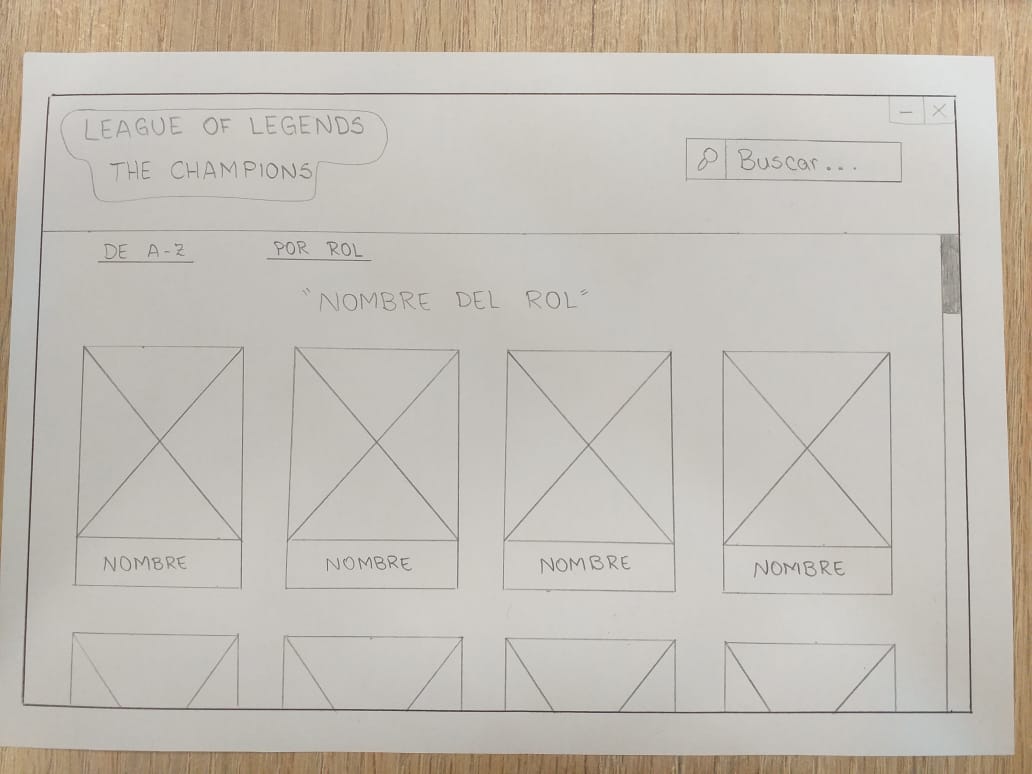 LEAGUE OF LEGENDS
THE CHAMPIONS
Buscar...
DE A-Z
POR ROL
"NOMBRE DEL ROL"
NOMBRE
NOMBRE
NOMBRE
NOMBRE